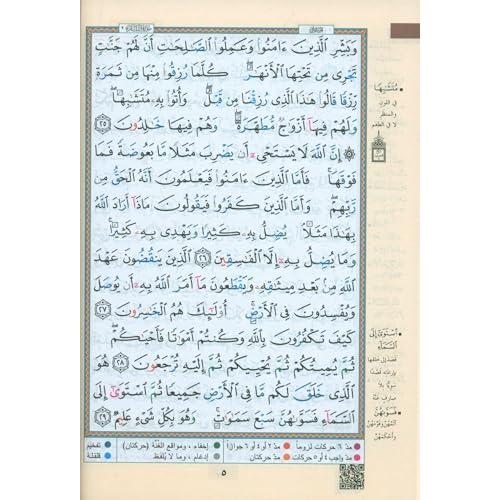 وَبَشِّرِ ٱلَّذِينَ ءَامَنُوا۟ وَعَمِلُوا۟ ٱلصَّـٰلِحَـٰتِ أَنَّ لَهُمْ جَنَّـٰتٍ
تَجْرِى مِن تَحْتِهَا ٱلْأَنْهَـٰرُ ۖ كُلَّمَا رُزِقُوا۟ مِنْهَا مِن ثَمَرَةٍ
رِّزْقًا ۙ قَالُوا۟ هَـٰذَا ٱلَّذِى رُزِقْنَا مِن قَبْلُ ۖ وَأُتُوا۟ بِهِۦ مُتَشَـٰبِهًا ۖ
وَلَهُمْ فِيهَآ أَزْوَٰجٌ مُّطَهَّرَةٌ ۖ وَهُمْ فِيهَا خَـٰلِدُونَ ٢٥
۞ إِنَّ ٱللَّهَ لَا يَسْتَحْىِۦٓ أَن يَضْرِبَ مَثَلًا مَّا بَعُوضَةً فَمَا
فَوْقَهَا ۚ فَأَمَّا ٱلَّذِينَ ءَامَنُوا۟ فَيَعْلَمُونَ أَنَّهُ ٱلْحَقُّ مِن
رَّبِّهِمْ ۖ وَأَمَّا ٱلَّذِينَ كَفَرُوا۟ فَيَقُولُونَ مَاذَآ أَرَادَ ٱللَّهُ
بِهَـٰذَا مَثَلًا ۘ يُضِلُّ بِهِۦ كَثِيرًا وَيَهْدِى بِهِۦ كَثِيرًا ۚ
وَمَا يُضِلُّ بِهِۦٓ إِلَّا ٱلْفَـٰسِقِينَ ٢٦ ٱلَّذِينَ يَنقُضُونَ عَهْدَ
ٱللَّهِ مِنۢ بَعْدِ مِيثَـٰقِهِۦ وَيَقْطَعُونَ مَآ أَمَرَ ٱللَّهُ بِهِۦٓ أَن يُوصَلَ
وَيُفْسِدُونَ فِى ٱلْأَرْضِ ۚ أُو۟لَـٰٓئِكَ هُمُ ٱلْخَـٰسِرُونَ ٢٧
كَيْفَ تَكْفُرُونَ بِٱللَّهِ وَكُنتُمْ أَمْوَٰتًا فَأَحْيَـٰكُمْ ۖ
ثُمَّ يُمِيتُكُمْ ثُمَّ يُحْيِيكُمْ ثُمَّ إِلَيْهِ تُرْجَعُونَ ٢٨ هُوَ
ٱلَّذِى خَلَقَ لَكُم مَّا فِى ٱلْأَرْضِ جَمِيعًا ثُمَّ ٱسْتَوَىٰٓ إِلَى
ٱلسَّمَآءِ فَسَوَّىٰهُنَّ سَبْعَ سَمَـٰوَٰتٍ ۚ وَهُوَ بِكُلِّ شَىْءٍ عَلِيمٌ ٢٩
مُتَشَابِهًا
في اللون
والمنظر
لا في الطعم
اسْتَوَى إِلَى
السَّمَاءِ
قصد إلى خلقها
بإرادته قصداً
سوياً بلا
صارف عنه
فَسَوَّاهُنَّ
أتمهن وقومهن
وأحكمهن
مدّ ٦ حركات لزوماً
مدّ ٢ أو ٤ أو ٦ جوازاً
إخفاء، ومواقع الغُنَّة (حركتان)
تفخيم
مدّ واجب ٤ أو ٥ حركات
مدّ حركتان
إدغام، وما لا يُلفَظ
قلقلة
٥